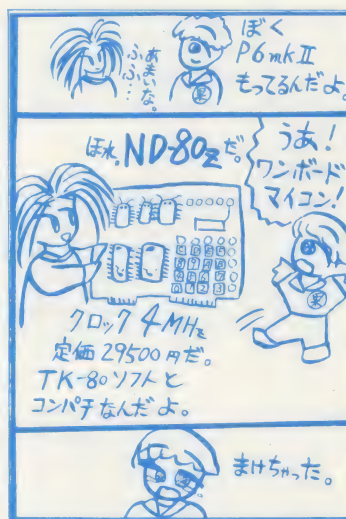 ぼく
P6mkⅡ
もってるんだよ。
あまいな。
ふふ…
ほれ。ND-80Zだ。
うあ!
ワンボード
マイコン!
クロック 4MHz
定価 29500円だ。
TK-80 ソフトと
コンパチなんだよ。
まけちゃった。